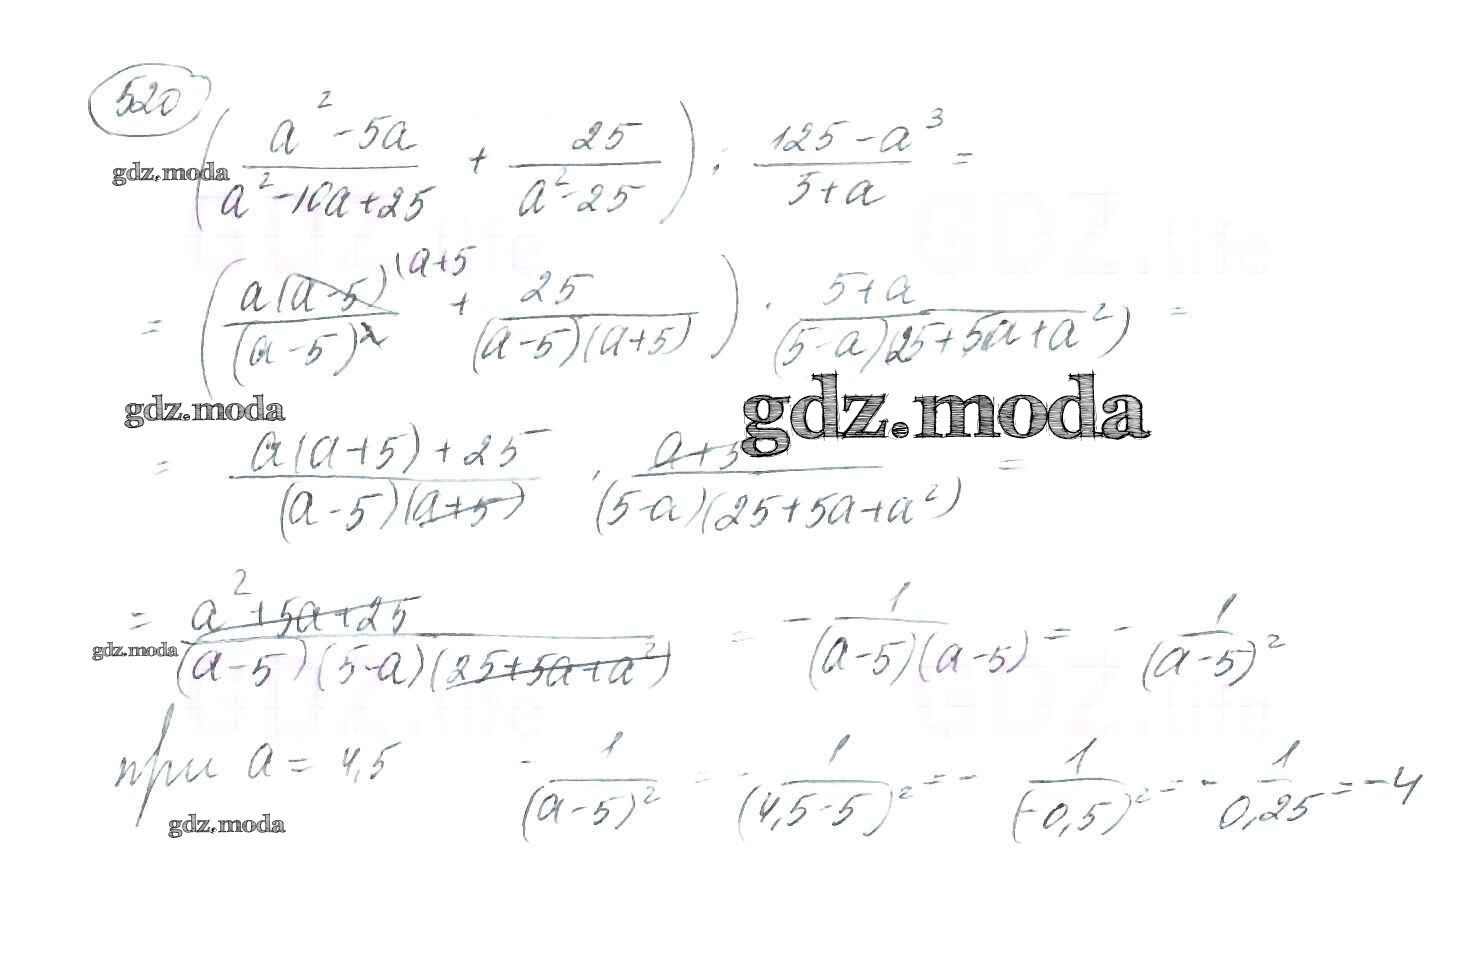 520
( a² - 5a / a² - 10a + 25 + 25 / a² - 25 ) : 125 - a³ / 5 + a =
gdz.moda
= ( a(a-5)(a+5 / (a-5)² + 25 / (a-5)(a+5) ) · 5+a / (5-a)(25+5a+a²) =
gdz.moda
gdz.moda
= a(a+5)+25 / (a-5)(a+5) · a+5 / (5-a)(25+5a+a²) =
= a²+5a+25 / (a-5)(5-a)(25+5a+a²) = - 1 / (a-5)(a-5) = - 1 / (a-5)²
gdz.moda
при a = 4,5 - 1 / (a-5)² = - 1 / (4,5-5)² = - 1 / (-0,5)² = - 1 / 0,25 = -4
gdz.moda
GDZ.life
GDZ.life
GDZ.life
GDZ.life